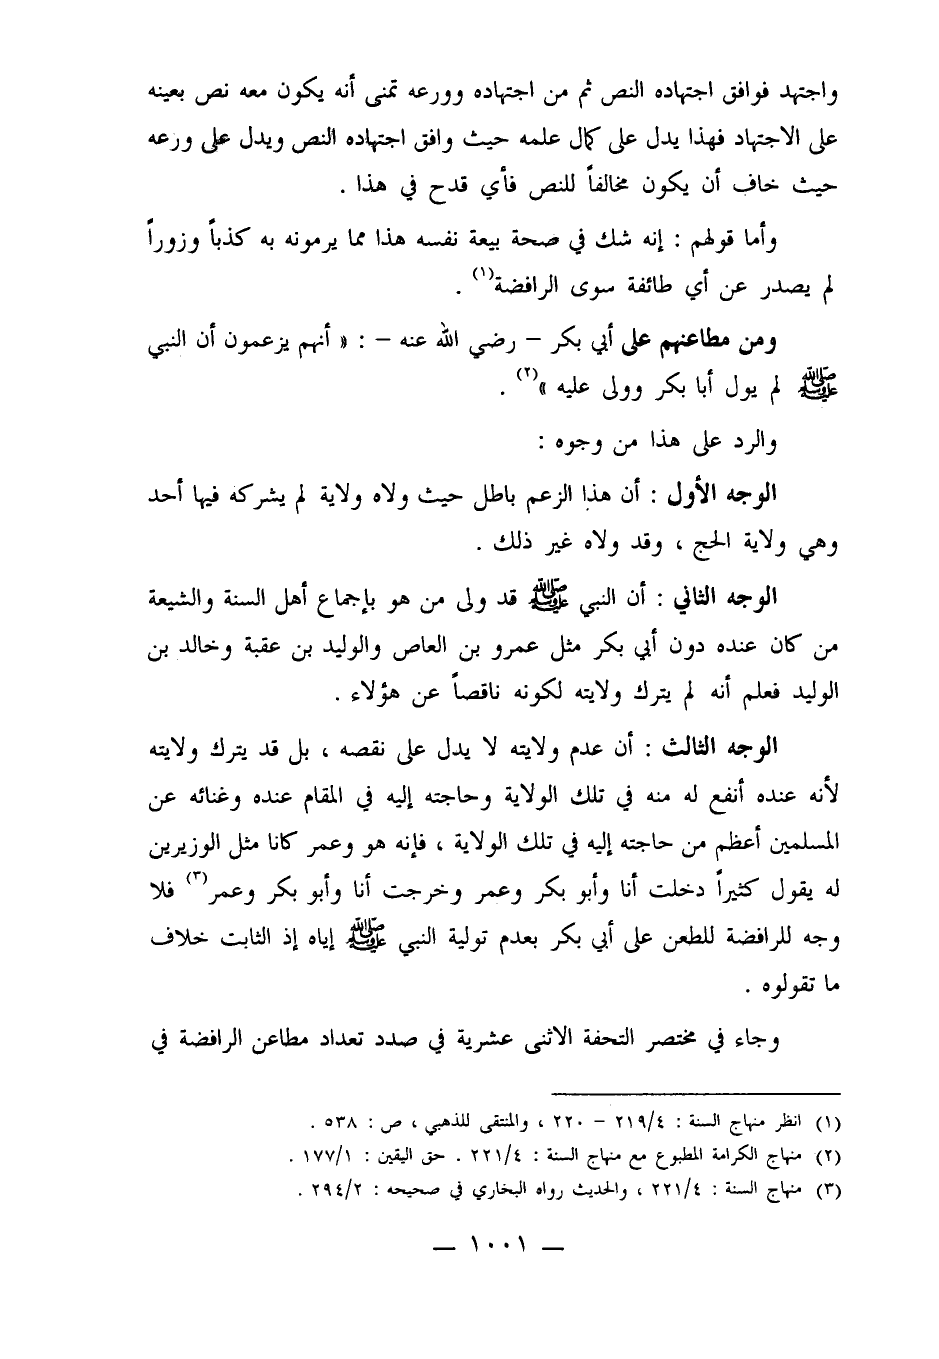 واجتهد فوافق اجتهاده النص ثم من اجتهاده وورعه تمنى أنه يكون معه نص بعينه
على الاجتهاد فهذا يدل على كمال علمه حيث وافق اجتهاده النص ويدل على ورعه
حيث خاف أن يكون مخالفاً للنص فأي قدح في هذا .
وأما قولهم : إنه شك في صحة بيعة نفسه هذا مما يرمونه به كذباً وزوراً
لم يصدر عن أي طائفة سوى الرافضة(١) .
ومن مطاعنهم على أبي بكر – رضي الله عنه – : « أنهم يزعمون أن النبي
ﷺ لم يول أبا بكر وولى عليه »(٢) .
والرد على هذا من وجوه :
الوجه الأول : أن هذا الزعم باطل حيث ولاه ولاية لم يشركه فيها أحد
وهي ولاية الحج ، وقد ولاه غير ذلك .
الوجه الثاني : أن النبي ﷺ قد ولى من هو بإجماع أهل السنة والشيعة
من كان عنده دون أبي بكر مثل عمرو بن العاص والوليد بن عقبة وخالد بن
الوليد فعلم أنه لم يترك ولايته لكونه ناقصاً عن هؤلاء .
الوجه الثالث : أن عدم ولايته لا يدل على نقصه ، بل قد يترك ولايته
لأنه عنده أنفع له منه في تلك الولاية وحاجته إليه في المقام عنده وغنائه عن
المسلمين أعظم من حاجته إليه في تلك الولاية ، فإنه هو وعمر كانا مثل الوزيرين
له يقول كثيراً دخلت أنا وأبو بكر وعمر وخرجت أنا وأبو بكر وعمر(٣) فلا
وجه للرافضة للطعن على أبي بكر بعدم تولية النبي ﷺ إياه إذ الثابت خلاف
ما تقولوه .
وجاء في مختصر التحفة الاثنى عشرية في صدد تعداد مطاعن الرافضة في
(١) انظر منهاج السنة : ٢١٩/٤ – ٢٢٠ ، والمنتقى للذهبي ، ص : ٥٣٨ .
(٢) منهاج الكرامة المطبوع مع منهاج السنة : ٢٢١/٤ . حق اليقين : ١٧٧/١ .
(٣) منهاج السنة : ٢٢١/٤ ، والحديث رواه البخاري في صحيحه : ٢٩٤/٢ .
— ١٠٠١ —